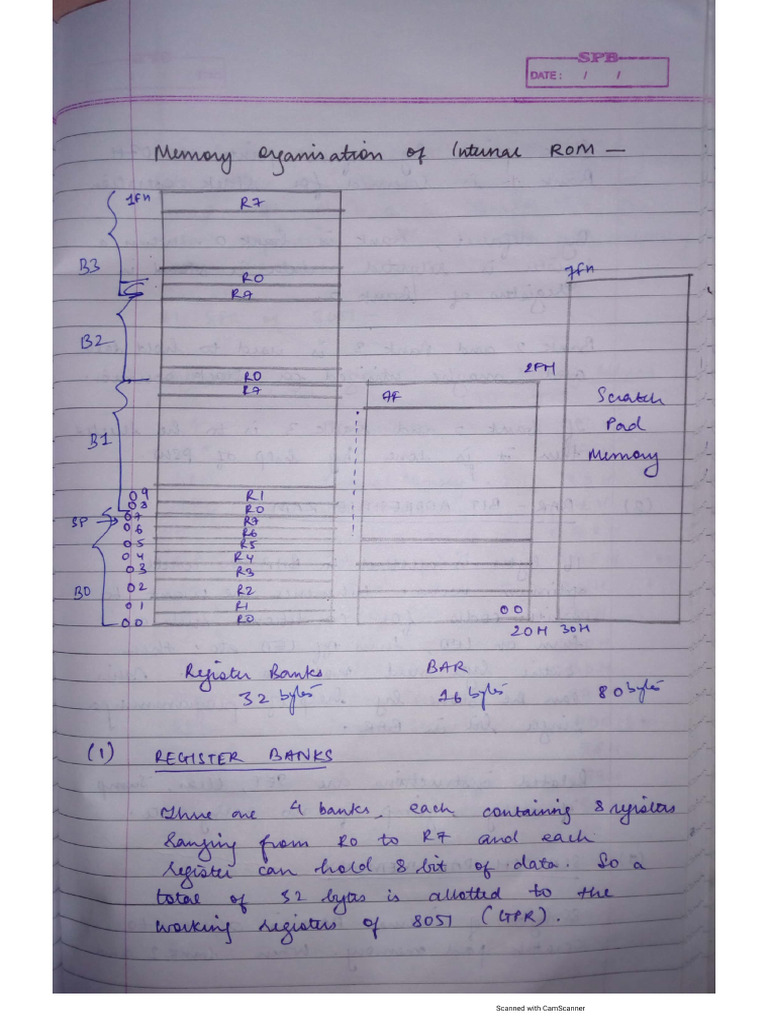 SPB
DATE: / /
Memory Organisation of Internal ROM —
1FH
R7
B3
R0
R7
7FH
B2
R0
R7
2FH
AF
Scratch
Pad
Memory
B1
09
R1
08
R0
SP → 07
R7
06
R6
05
R5
04
R4
03
R3
B0
02
R2
01
R1
00
R0
00
20H 30H
Register Banks
BAR
32 bytes
16 bytes
80 bytes
(1) REGISTER BANKS
There are 4 banks, each containing 8 registers
Ranging from R0 to R7 and each
register can hold 8 bit of data. So a
total of 32 bytes is allotted to the
working registers of 8051 (GPR).
Scanned with CamScanner